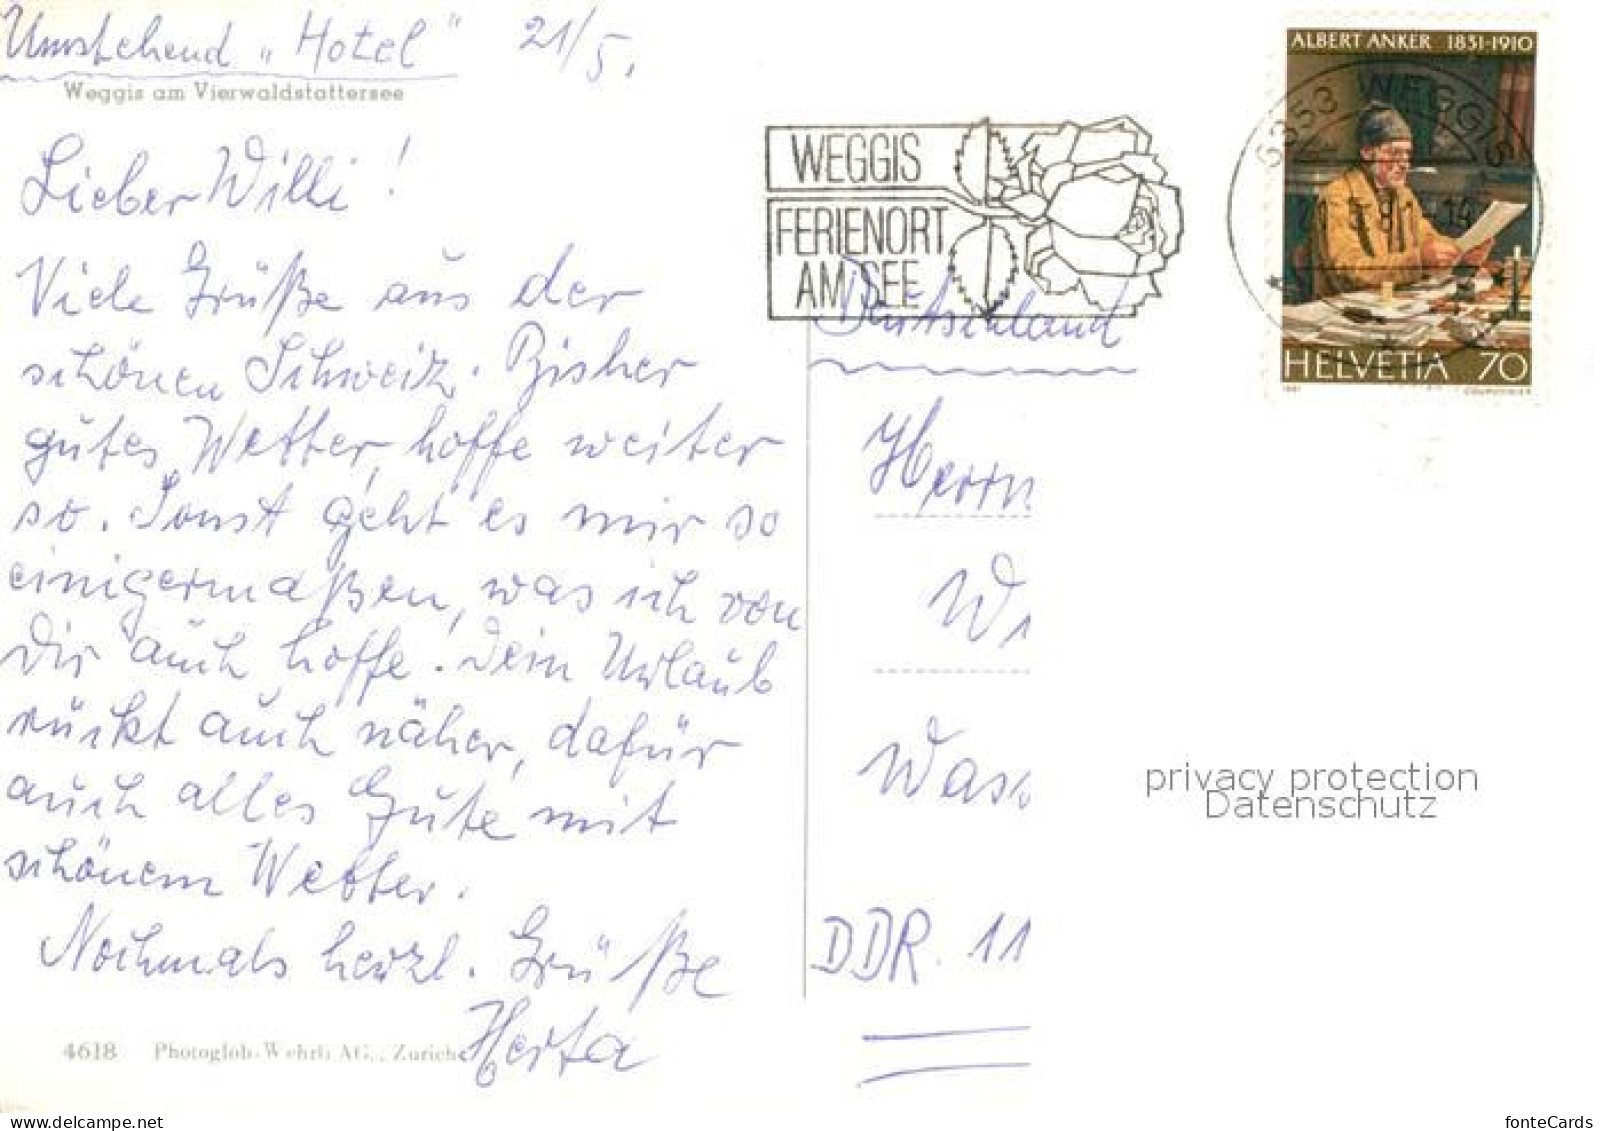 Umstehend „Hotel" 21/5.
Weggis am Vierwaldstattersee
Lieber Willi!
Viele Grüße aus der
schönen Schweiz. Bisher
gutes Wetter, hoffe weiter
so. Sonst geht es mir so
einigermaßen, was ich von
Dir auch hoffe. Dein Urlaub
rückt auch näher, dafür
auch alles Gute mit
schönem Wetter.
Nochmals herzl. Grüße
Herta
4618 Photoglob-Wehrli AG., Zurich
WEGGIS
FERIENORT
AM SEE
ALBERT ANKER 1831-1910
6353 WEGGIS
HELVETIA 70
1981 COURVOISIER
Deutschland
Herrn
Wi
Was
DDR. 11
privacy protection
Datenschutz
www.delcampe.net
fonteCards